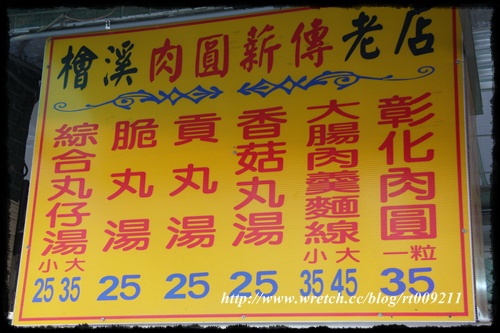 檜溪肉圓薪傳老店
彰化肉圓
一粒
35
大腸肉羹麵線
小 大
35 45
香菇丸湯
25
貢丸湯
25
脆丸湯
25
綜合丸仔湯
小 大
25 35
http://www.wretch.cc/blog/rt009211